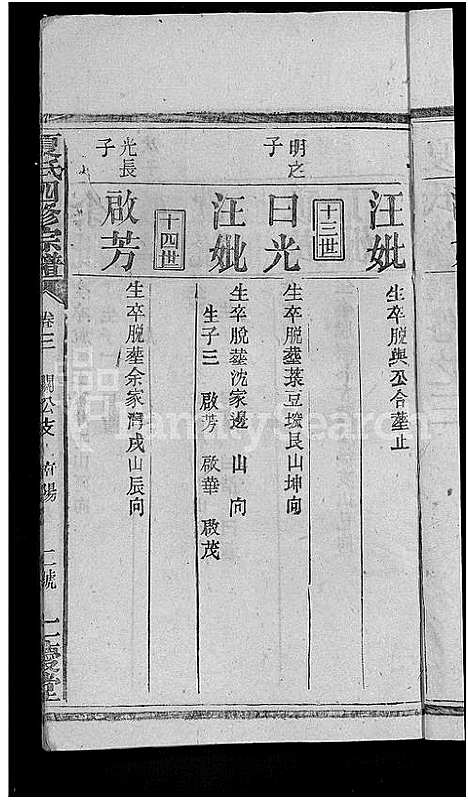 汪妣
生卒脫與公合塟止
十三世
明之子
日光
生卒脫塟菉豆塝艮山坤向
汪妣
生卒脫塟沈家邊 山 向
生子三 啟芳 啟華 啟茂
十四世
光長子
啟芳
生卒脫塟余家灣戌山辰向
夏氏四修宗譜
卷三
關公支
仁慶堂
FamilySearch